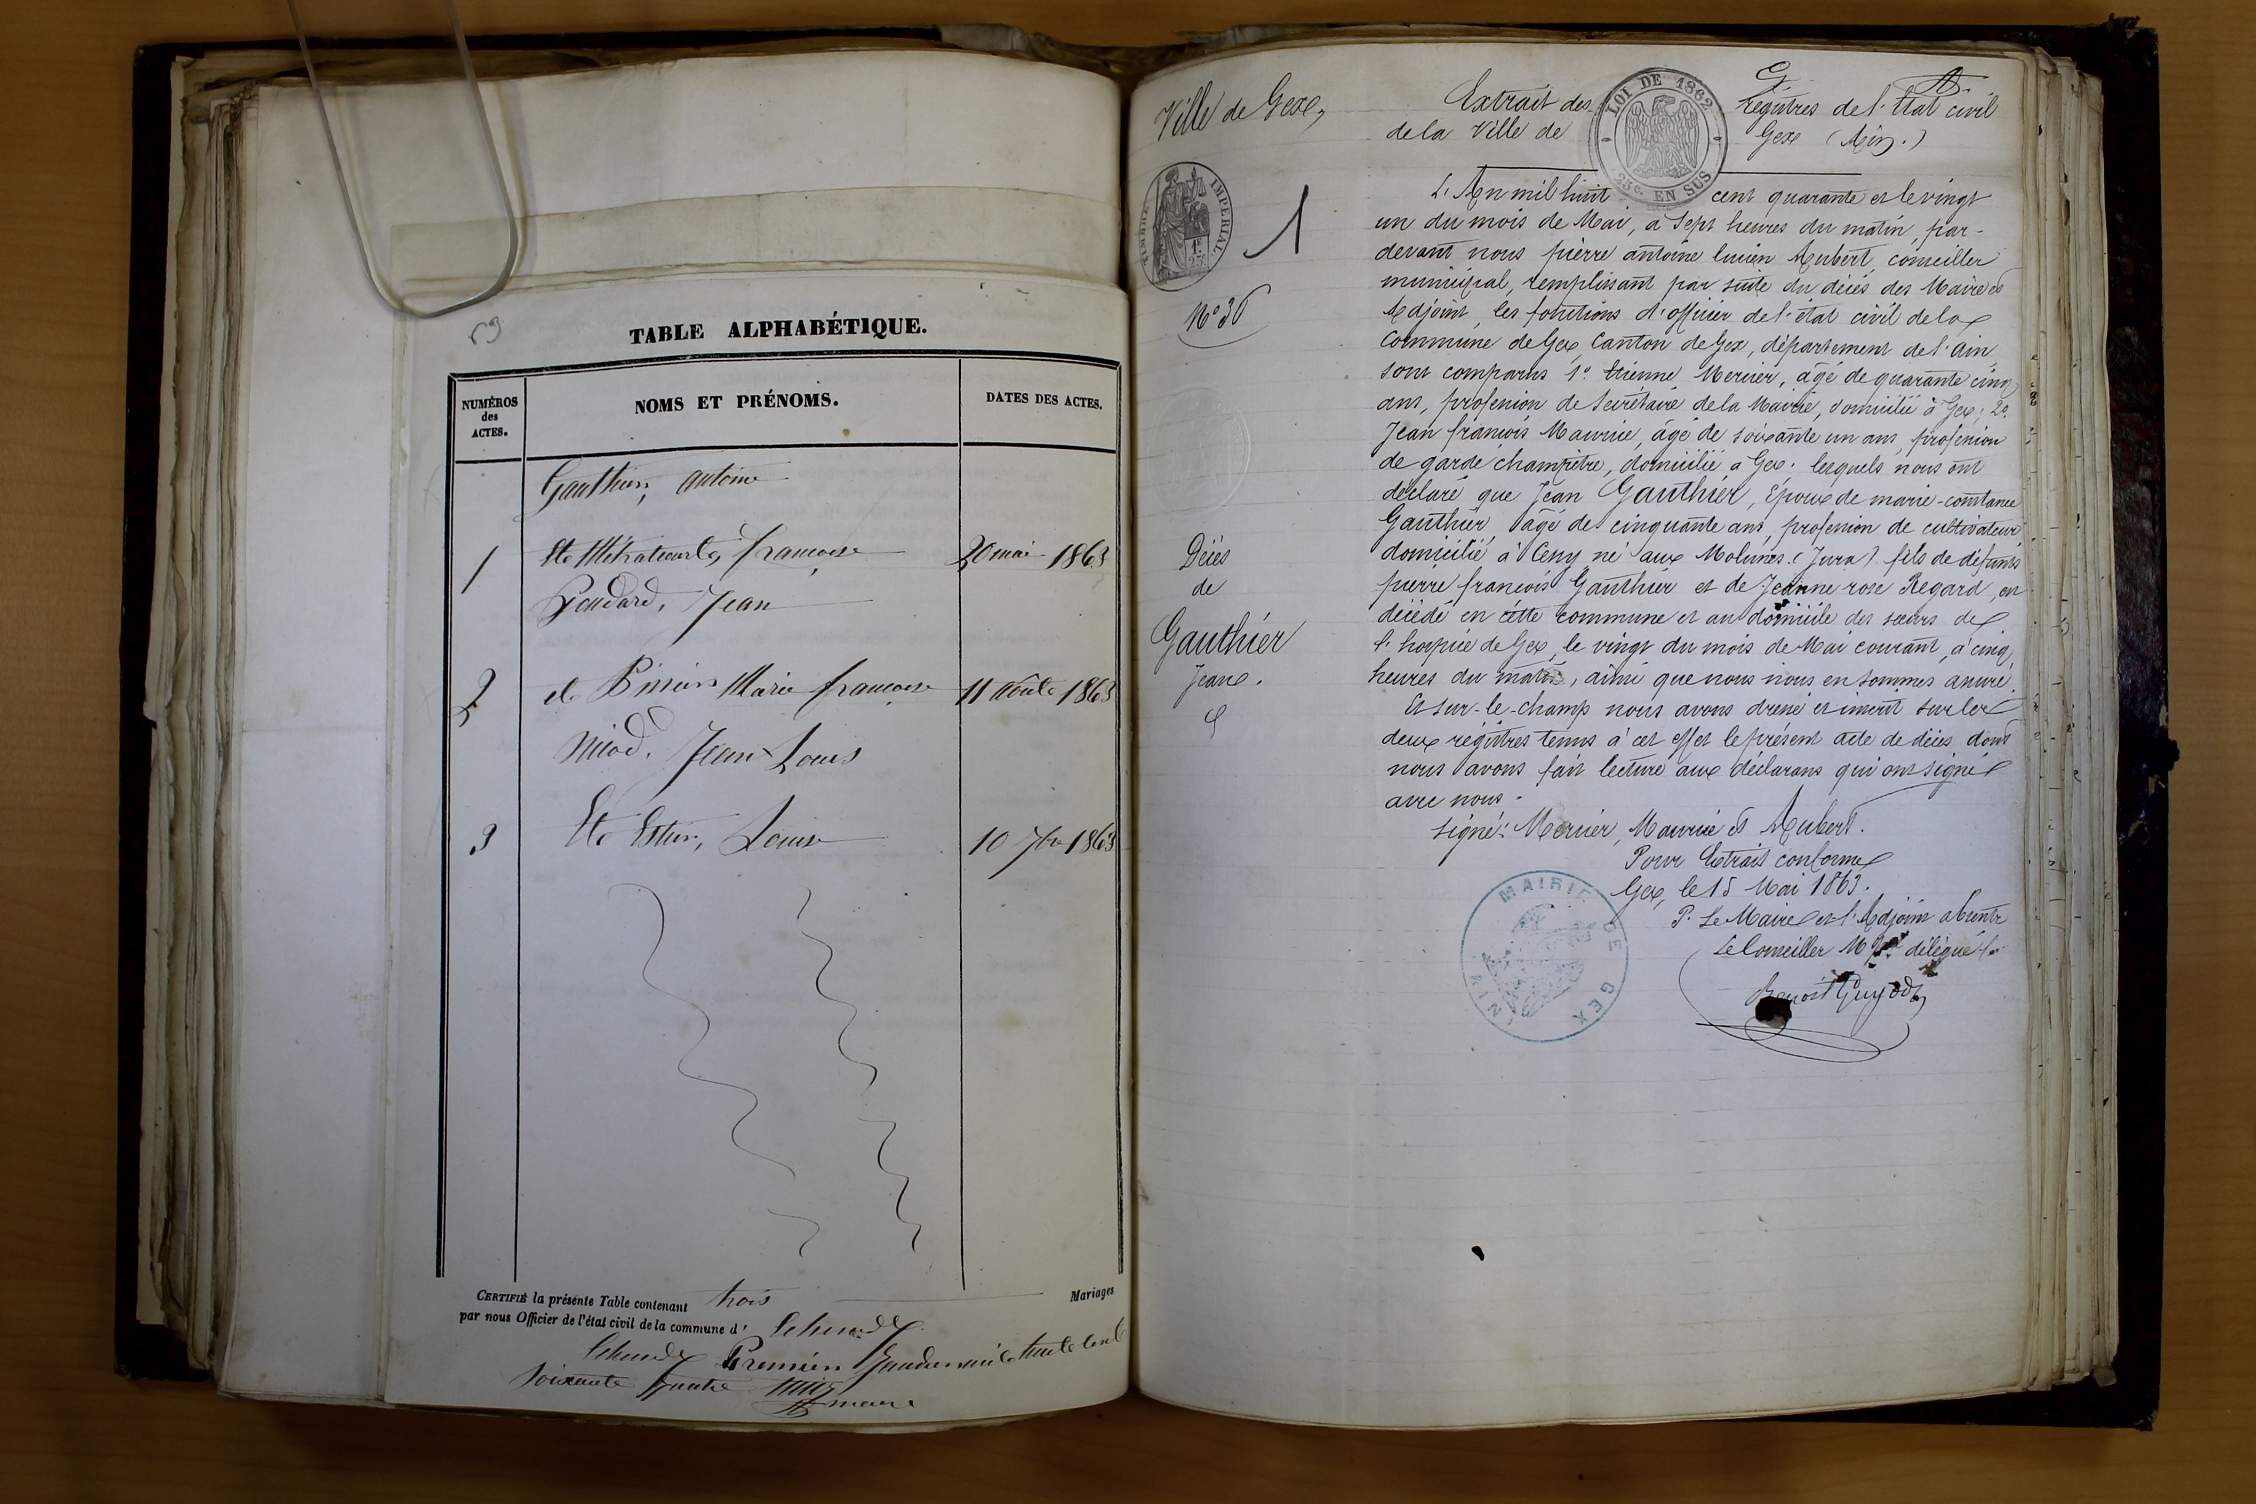 TABLE ALPHABÉTIQUE.
NUMÉROS
des
ACTES.
NOMS ET PRÉNOMS.
DATES DES ACTES.
Gauthier, antoine
1 et françoise 20 mai 1863
Goudard, Jean
2 et Marie françoise 11 Août 1863
Niod, Jean Louis
3 Et Louise 10 7bre 1863
CERTIFIÉ la présente Table contenant trois Mariages
par nous Officier de l'état civil de la commune d'
Premier
soixante quatre
maire
Ville de Gex,
TIMBRE IMPÉRIAL
1
No 36
Décès
de
Gauthier
Jean.
LOI DE 1862
EN SUS
Extrait des registres de l'état civil
de la Ville de Gex (Ain.)
L'An mil huit cent quarante et le vingt
un du mois de Mai, à sept heures du matin, par-
devant nous pierre antoine lucien Aubert, conseiller
municipal, remplissant par suite du décès des Maire et
Adjoint, les fonctions d'officier de l'état civil de la
Commune de Gex, Canton de Gex, département de l'Ain
sont comparus 1o. Etienne Mercier, âgé de quarante cinq
ans, profession de Secrétaire de la Mairie, domicilié à Gex; 2o.
Jean françois Maurice, âgé de soixante un ans, profession
de garde champêtre, domicilié à Gex. lesquels nous ont
déclaré que Jean Gauthier, Époux de marie-constance
Gauthier âgé de cinquante ans, profession de cultivateur
domicilié à Cessy né aux Molunes (Jura) fils de défunts
pierre françois Gauthier et de Jeanne rose Regard, est
décédé en cette commune et au domicile des sœurs de
l'hospice de Gex, le vingt du mois de Mai courant, à cinq
heures du matin, ainsi que nous nous en sommes assuré.
Et sur-le-champ nous avons dressé et inscrit sur les
deux régistres tenus à cet effet le présent acte de décès, dont
nous avons fait lecture aux déclarans qui ont signé
avec nous.
signé: Mercier, Maurice et Aubert.
Pour Extrait conforme
Gex, le 15 Mai 1863.
P. Le Maire et l'Adjoint absents
Le Conseiller Mpal délégué
Benoist
MAIRIE DE GEX
(AIN)